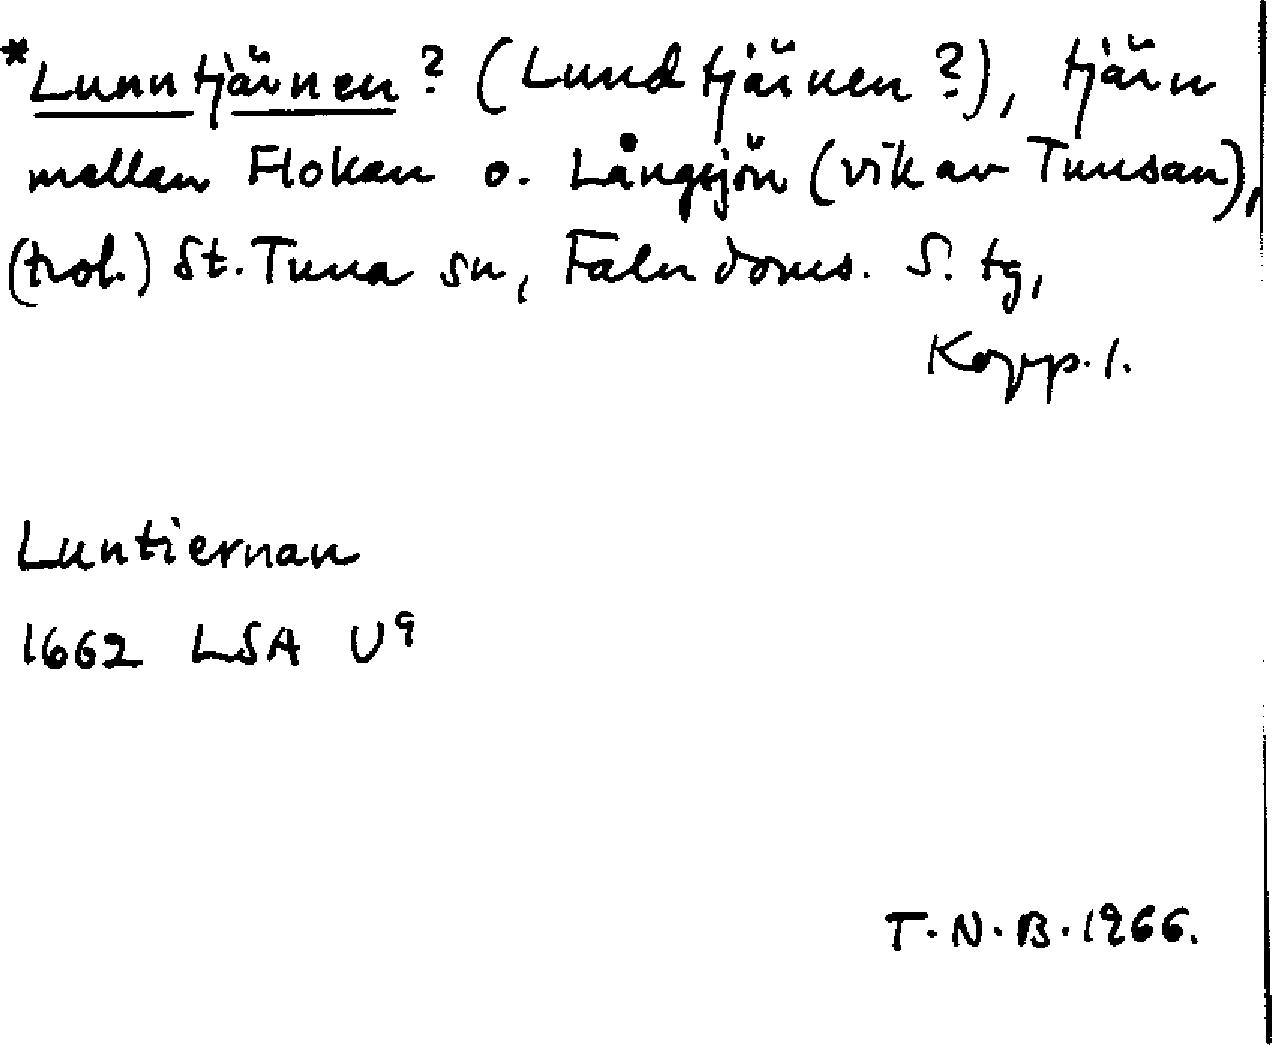 *Lunntjärnen? (Lundtjärnen?), tjärn
mellan Flokan o. Långsjön (vik av Tunsan),
(trol.) St. Tuna sn, Falu doms. S. tg,
Kopp. l.
Luntiernan
1662 LSA U9
T. N. B. 1966.